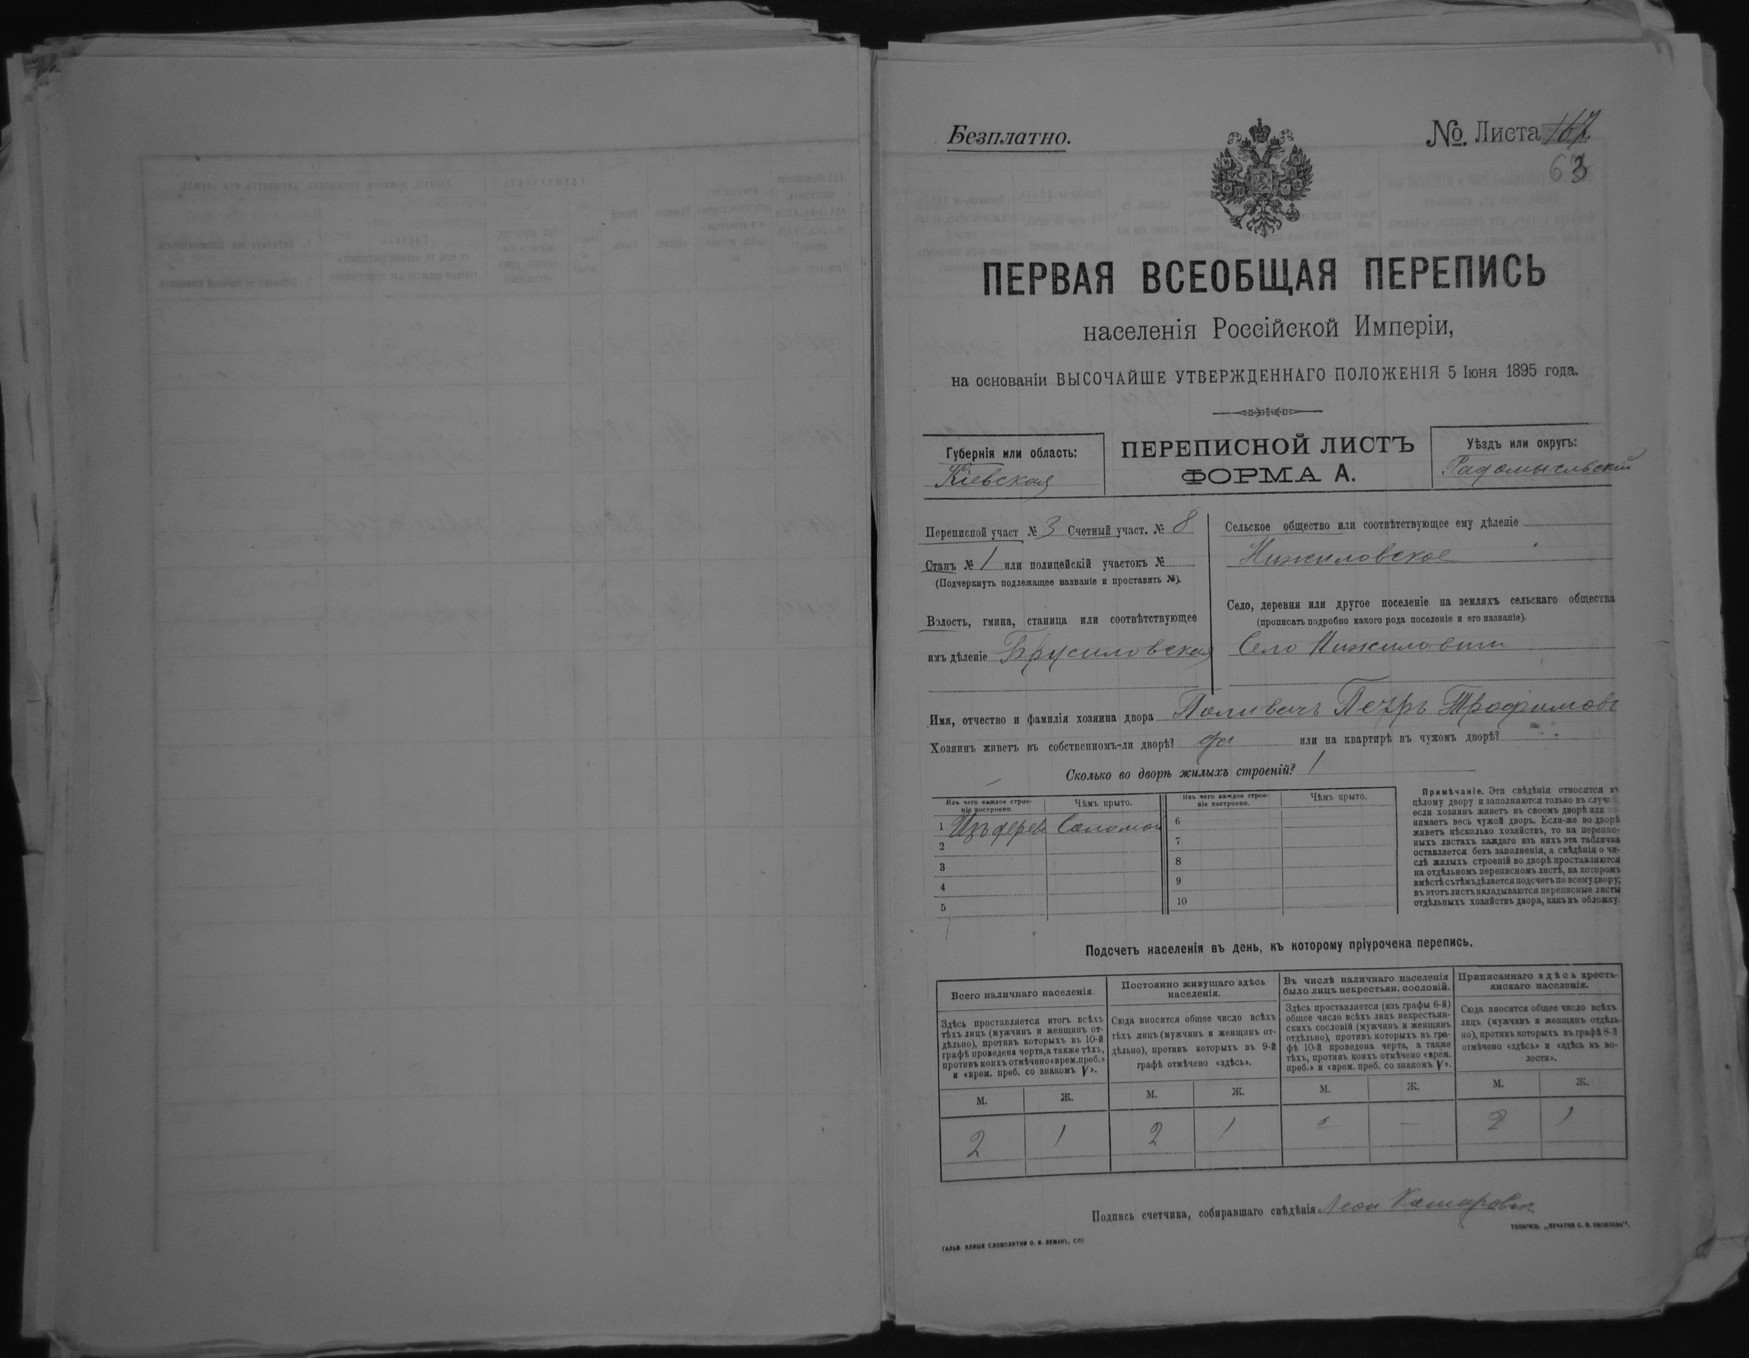 Безплатно.
№. Листа 167
63
ПЕРВАЯ ВСЕОБЩАЯ ПЕРЕПИСЬ
населенія Россійской Имперіи,
на основаніи ВЫСОЧАЙШЕ УТВЕРЖДЕННАГО ПОЛОЖЕНІЯ 5 Іюня 1895 года.
Губернія или область:
Кіевская
ПЕРЕПИСНОЙ ЛИСТЪ
ФОРМА А.
Уѣздъ или округъ:
Радомысльскій
Переписной участ № 3 Счетный участ. № 8
Станъ № 1 или полицейскій участокъ №
(Подчеркнуть подлежащее названіе и проставить №).
Волость, гмина, станица или соотвѣтствующее
имъ дѣленіе Брусиловская
Сельское общество или соотвѣтствующее ему дѣленіе
Нижиловское
Село, деревня или другое поселеніе на земляхъ сельскаго общества
(прописать подробно какого рода поселеніе и его названіе).
Село Нижиловичи
Имя, отчество и фамилія хозяина двора Поливачъ Петръ Трофимовъ
Хозяинъ живетъ въ собственномъ-ли дворѣ? да или на квартирѣ въ чужомъ дворѣ? -
Сколько во дворѣ жилыхъ строеній? 1
Изъ чего каждое строе-
ніе построено.
Чѣмъ крыто.
Изъ чего каждое строе-
ніе построено.
Чѣмъ крыто.
1 Изъ дерев Соломой
2
3
4
5
6
7
8
9
10
Примѣчаніе. Эти свѣдѣнія относятся къ
цѣлому двору и заполняются только въ случ
если хозяинъ живетъ въ своемъ дворѣ или
нимаетъ весь чужой дворъ. Если-же во дворѣ
живетъ нѣсколько хозяйствъ, то на перепис-
ныхъ листахъ каждаго изъ нихъ эта табличка
оставляется безъ заполненія, а свѣдѣнія о чи-
слѣ жилыхъ строеній во дворѣ проставляются
на отдѣльномъ переписномъ листѣ, на которомъ
вмѣстѣ съ тѣмъ дѣлается подсчетъ по всему двору;
въ этотъ листъ вкладываются переписные листы
отдѣльныхъ хозяйствъ двора, какъ въ обложку.
Подсчетъ населенія въ день, къ которому пріурочена перепись.
Всего наличнаго населенія.
Здѣсь проставляется итогъ всѣхъ
тѣхъ лицъ (мужчинъ и женщинъ от-
дѣльно), противъ которыхъ въ 10-й
графѣ проведена черта, а также тѣхъ,
противъ коихъ отмѣчено «врем. преб.»
и «врем. преб. со знакомъ V».
М. Ж.
2 1
Постоянно живущаго здѣсь
населенія.
Сюда вносится общее число всѣхъ
тѣхъ лицъ (мужчинъ и женщинъ от-
дѣльно), противъ которыхъ въ 9-й
графѣ отмѣчено «здѣсь».
М. Ж.
2 1
Въ числѣ наличнаго населенія
было лицъ некрестьян. сословій.
Здѣсь проставляется (изъ графы 6-й)
общее число всѣхъ лицъ некрестьян-
скихъ сословій (мужчинъ и женщинъ
отдѣльно), противъ которыхъ въ гра-
фѣ 10-й проведена черта, а также
тѣхъ, противъ коихъ отмѣчено «врем.
преб.» и «врем. преб. со знакомъ V».
М. Ж.
-
Приписаннаго здѣсь кресть-
янскаго населенія.
Сюда вносится общее число всѣхъ
лицъ (мужчинъ и женщинъ отдѣль-
но), противъ которыхъ въ графѣ 8-й
отмѣчено «здѣсь» и «здѣсь къ во-
лости».
М. Ж.
2 1
Подпись счетчика, собиравшаго свѣдѣнія Леон
ГАЛЬВ. КЛИШЕ СЛОВОЛИТНИ О. И. ЛЕМАНЪ, СПБ
ТИПОГРАФ. „ПЕЧАТНЯ С. П. ЯКОВЛЕВА“.